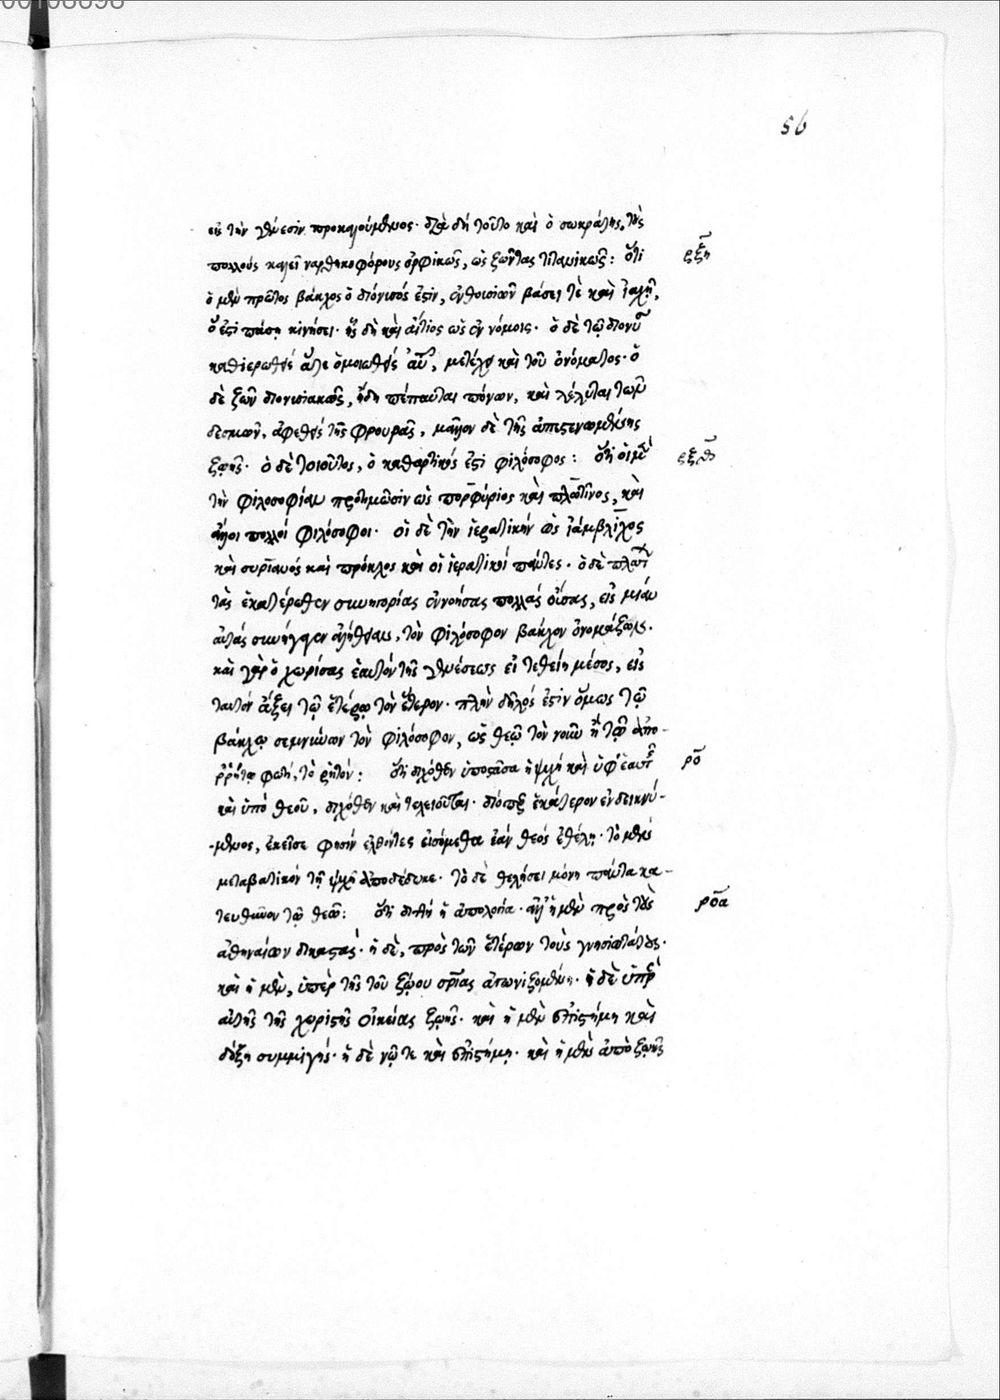 56
εἰς τὴν γένεσιν προκαλούμενος· διὸ δὴ τοῦτο καὶ ὁ σωκράτης, τοὺς
πολλοὺς καλεῖ ναρθηκοφόρους ὀρφικῶς, ὡς ζῶντας τιτανικῶς: ὅτι ρξη
ὁ μὲν πρῶτος βάκχος ὁ διόνυσός ἐστιν, ἐνθουσιῶν βάσει τὲ καὶ ἰαχῇ,
ὅ ἐστι πάσῃ κινήσει· ἧς δὴ καὶ αἴτιος ὡς ἐν νόμοις· ὁ δὲ τῷ διονύ
καθιερωθεὶς ἅτε ὁμοιωθεὶς αὐτ, μετέχει καὶ τοῦ ὀνόματος· ὁ
δὲ ζῶν διονυσιακῶς, ἤδη πέπαυται πόνων, καὶ λέλυται τῶν
δεσμῶν, ἀφεθεὶς τῆς φρουρᾶς, μᾶλλον δὲ τῆς ἀπεστενωμένης
ζωῆς· ὁ δὲ τοιοῦτος, ὁ καθαρτικός ἐστι φιλόσοφος: ὅτι οἱ μὲν ρξθ
τὴν φιλοσοφίαν προτιμῶσιν ὡς πορφύριος καὶ πλωτῖνος, καὶ
ἄλλοι πολλοὶ φιλόσοφοι· οἱ δὲ τὴν ἱερατικὴν ὡς ἰάμβλιχος
καὶ συριανὸς καὶ πρόκλος καὶ οἱ ἱερατικοὶ πάντες· ὁ δὲ πλάτ
τὰς ἑκατέρωθεν συνηγορίας ἐννοήσας πολλὰς οὔσας, εἰς μίαν
αὐτὰς συνήγαγεν ἀλήθειαν, τὸν φιλόσοφον βάκχον ὀνομάζων·
καὶ γὰρ ὁ χωρίσας ἑαυτὸν τῆς γενέσεως εἰ τεθείη μέσος, εἰς
ταυτὸν ἄξει τῷ ἑτέρῳ τὸν ἕτερον· πλὴν δῆλός ἐστιν ὅμως τῷ
βάκχῳ σεμνύνων τὸν φιλόσοφον, ὡς θεῷ τὸν νοῦν ἢ τῷ ἀπο-
ρρήτῳ φωτὶ, τὸ ῥητόν: ὅτι διχόθεν ὑποστᾶσα ἡ ψυχὴ καὶ ὑφ' ἑαυτ ρο
καὶ ὑπὸ θεοῦ, διχόθεν καὶ τελειοῦται· διόπερ ἑκάτερον ἐνδεικνύ-
-μενος, ἐκεῖσε φησὶν ἐλθόντες εἰσόμεθα ἐὰν θεὸς ἐθέλῃ· τὸ μὲν
μεταβατικὸν τῇ ψυχῇ ἀποδέδωκε· τὸ δὲ θελήσει μόνῃ πάντα κα-
τευθῦνον τῷ θεῷ: ὅτι διττὴ ἡ ἀπολογία· ἀλλ' ἡ μὲν πρὸς τοὺς ροα
ἀθηναίων δικαστάς· ἡ δὲ, πρὸς τῶν ἑτέρων τοὺς γνησιωτάτους·
καὶ ἡ μὲν, ὑπὲρ τῆς τοῦ ζῴου σρίας ἀγωνιζομένη· ἡ δὲ ὑπὲρ
αὐτῆς τῆς χωριστῆς οἰκείας ζωῆς· καὶ ἡ μὲν ἐπιστήμῃ καὶ
δόξῃ συμμιγής· ἡ δὲ νῷ καὶ ἐπιστήμῃ· καὶ ἡ μὲν ἀπὸ ζωῆς